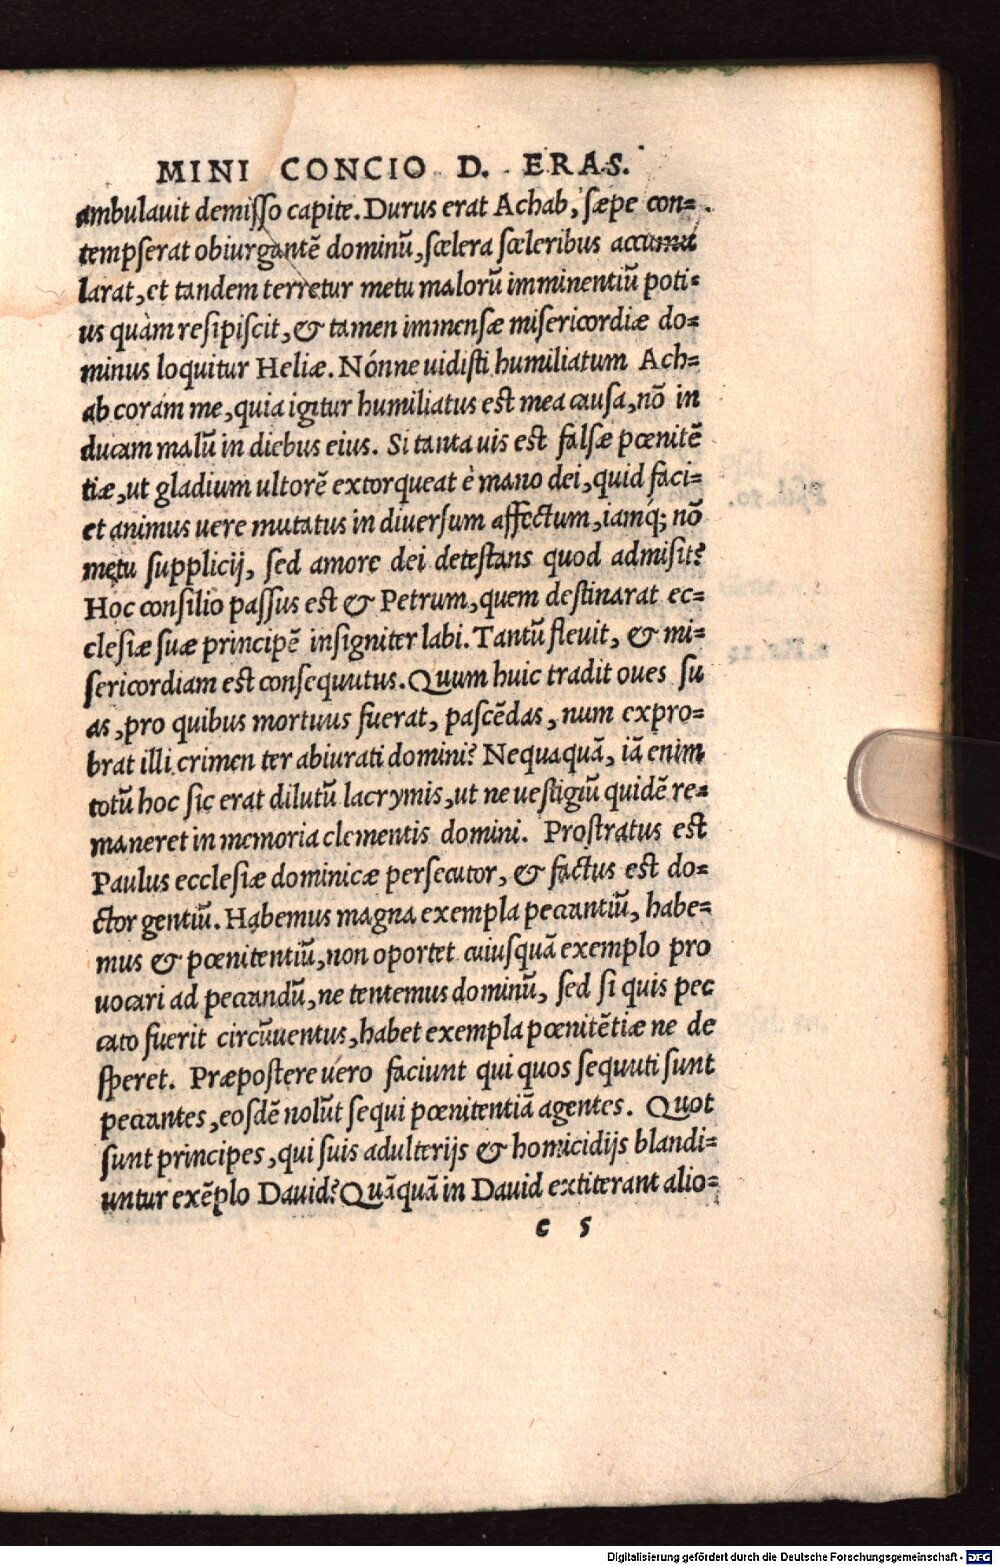 MINI CONCIO D. ERAS.
ambulauit demisso capite. Durus erat Achab, sæpe con=
tempserat obiurgantē dominū, scelera sceleribus accumu
larat, et tandem terretur metu malorū imminentiū poti=
us quàm resipiscit, & tamen immensæ misericordiæ do=
minus loquitur Heliæ. Nónne uidisti humiliatum Ach=
ab coram me, quia igitur humiliatus est mea causa, nō in
ducam malū in diebus eius. Si tanta uis est falsæ pœnitē
tiæ, ut gladium ultorē extorqueat è mano dei, quid faci=
et animus uere mutatus in diuersum affectum, iamq́; nō
metu supplicij, sed amore dei detestans quod admisit?
Hoc consilio passus est & Petrum, quem destinarat ec=
clesiæ suæ principē insigniter labi. Tantū fleuit, & mi=
sericordiam est consequutus. Quum huic tradit oues su
as, pro quibus mortuus fuerat, pascēdas, num expro=
brat illi crimen ter abiurati domini? Nequaquā, iā enim
totū hoc sic erat dilutū lacrymis, ut ne uestigiū quidē re=
maneret in memoria clementis domini. Prostratus est
Paulus ecclesiæ dominicæ persecutor, & factus est do=
ctor gentiū. Habemus magna exempla peccantiū, habe=
mus & pœnitentiū, non oportet cuiusquā exemplo pro
uocari ad peccandū, ne tentemus dominū, sed si quis pec
cato fuerit circūuentus, habet exempla pœnitētiæ ne de
speret. Præpostere uero faciunt qui quos sequuti sunt
peccantes, eosdē nolūt sequi pœnitentiā agentes. Quot
sunt principes, qui suis adulterijs & homicidijs blandi=
untur exēplo Dauid? Quāquā in Dauid extiterant alio=
c 5
Digitalisierung gefördert durch die Deutsche Forschungsgemeinschaft - DFG